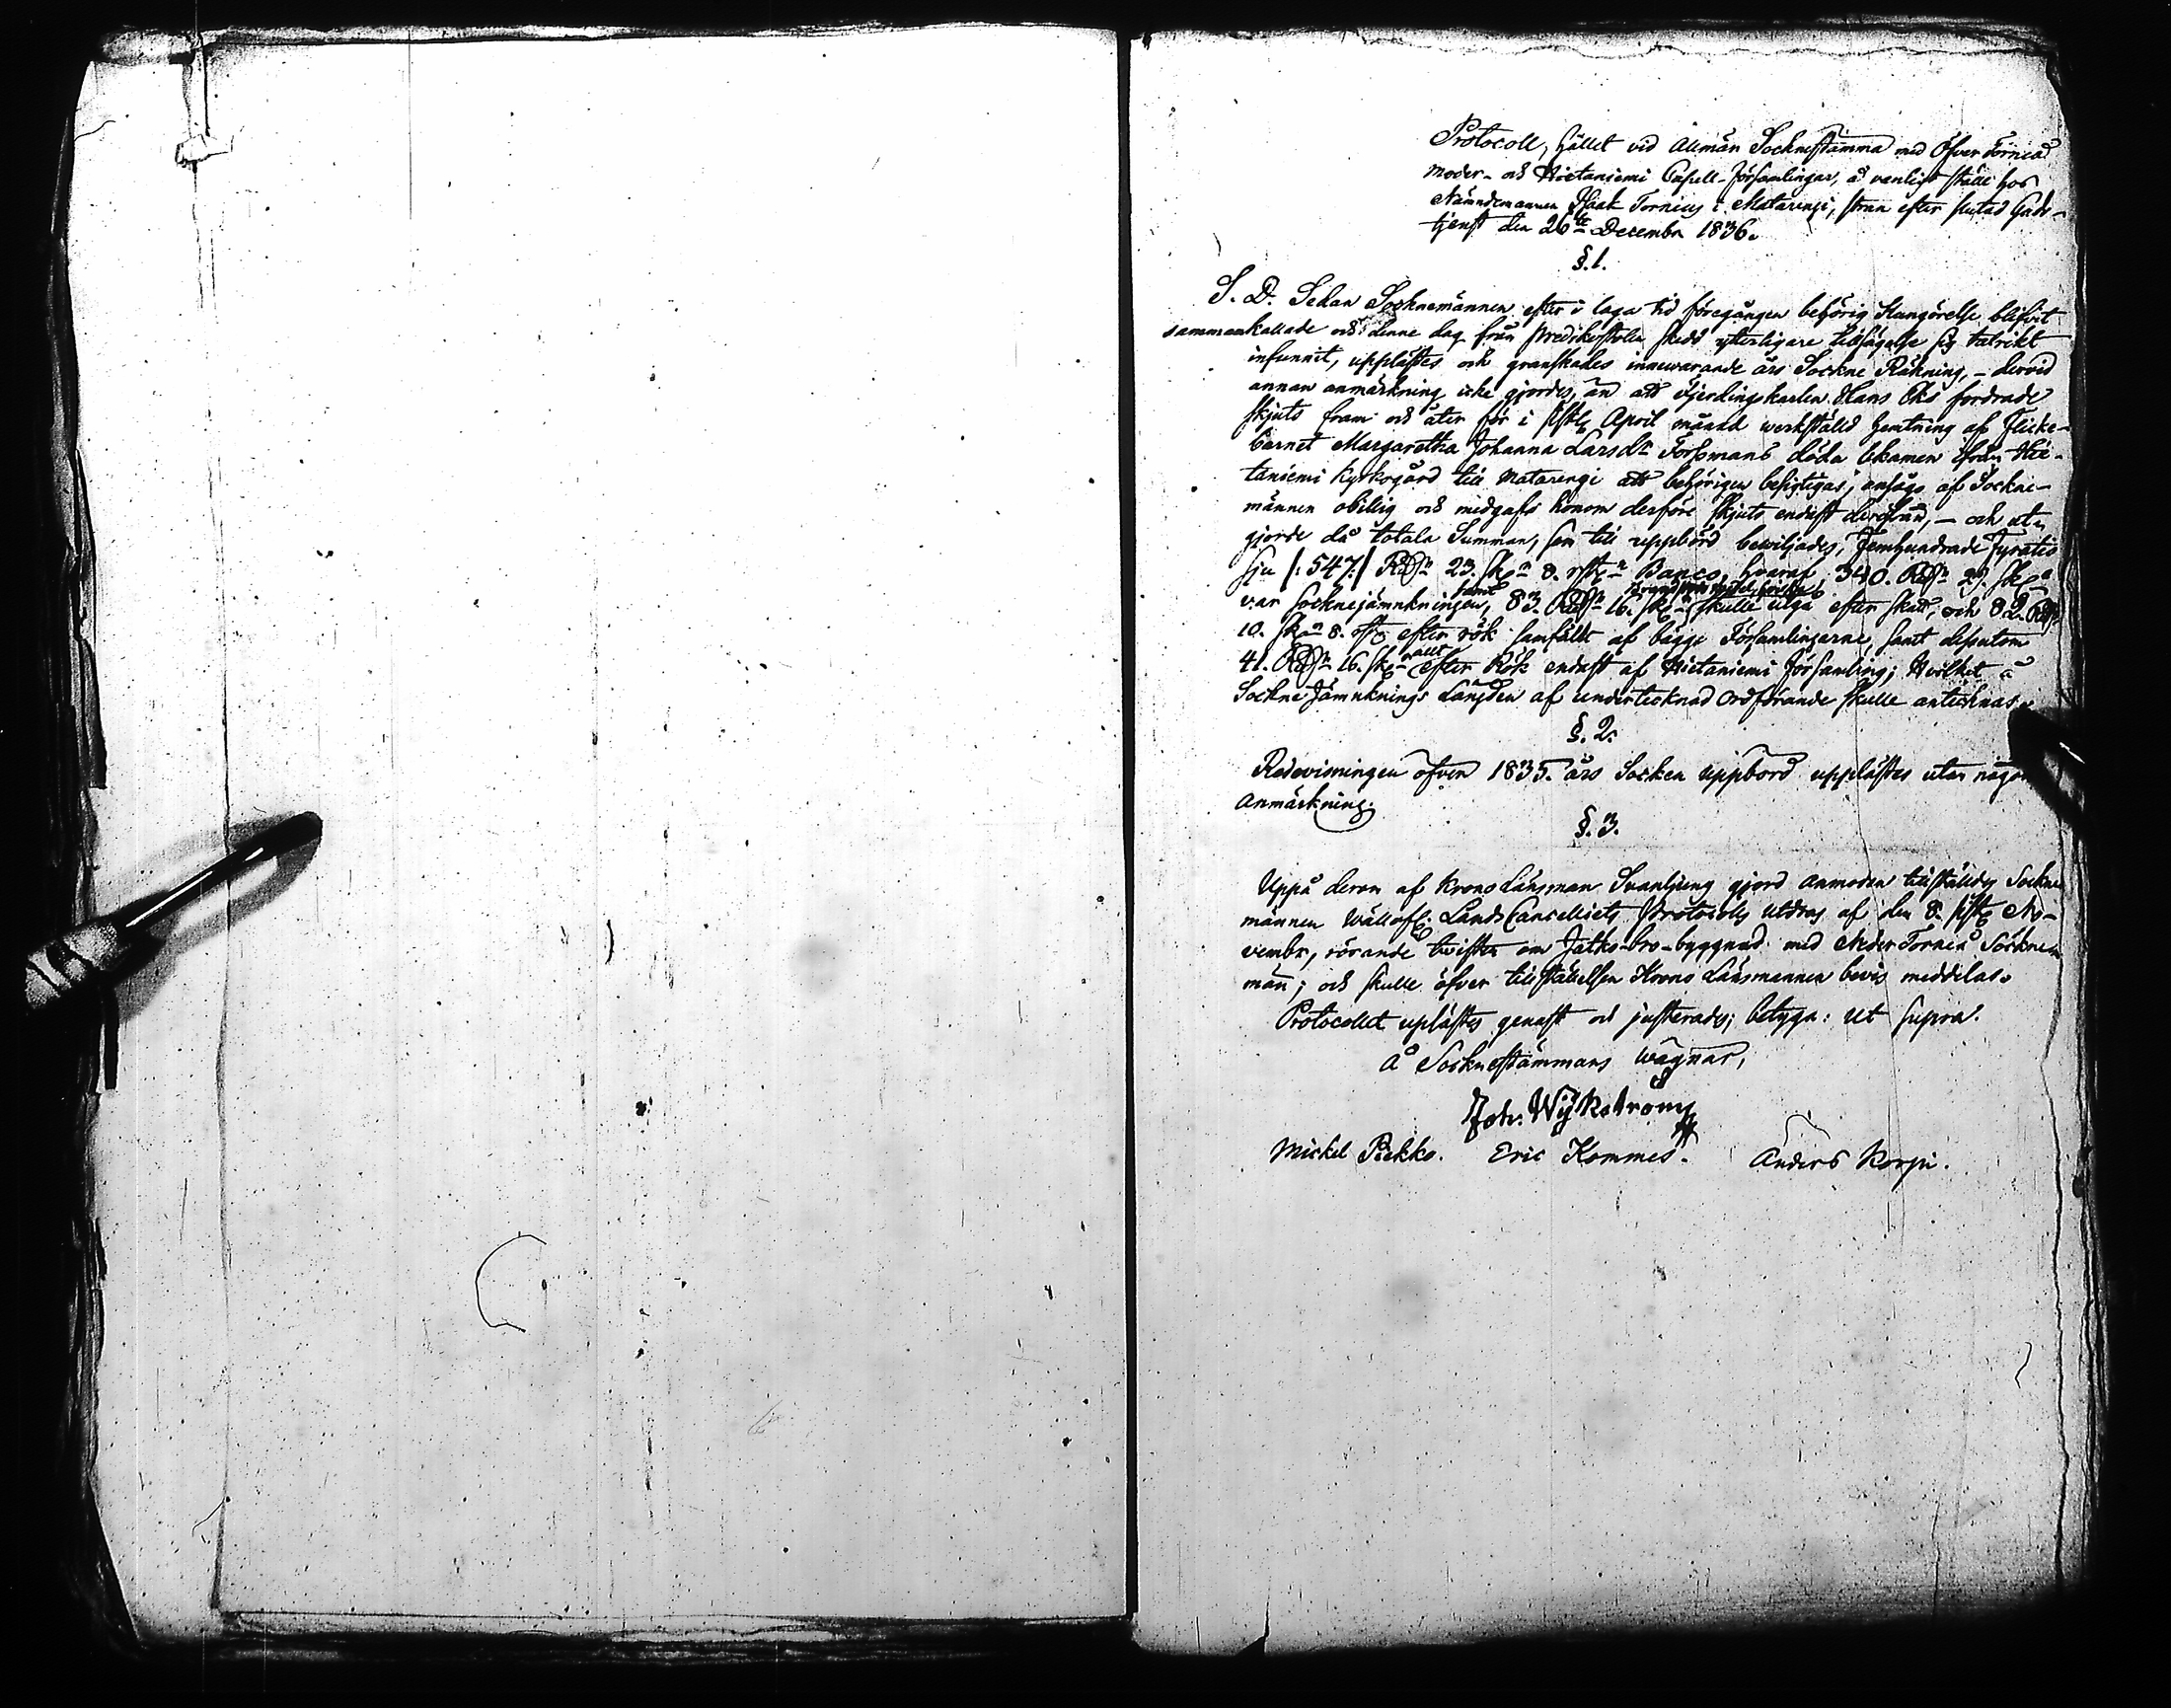 Protocoll, hållet vid Allmän Socknestämma med Öfver Torneå
Moder- och Hietaniemi Capell-Församlingar, å vanligt ställe hos
Nämndemannen Isaak Tornius i Matarengi, straxt efter slutad Guds-
tjenst den 26te Decembr 1836.
§.1.
S. D. Sedan Socknemännen efter i laga tid föregången behörig Kungörelse blifvit
sammankallade och denne dag från Predikostolen skedd ytterligare tillsägelse sig talrikt
infunnit, upplästes och granskades innevarande års Sockne Räkning, - dervid
annan anmärkning icke gjordes, än att Fjerdingskarlen Hans Oks fordrade
skjuts fram och åter för i sistl. April månad werkställd hemtning af Flicke-
barnet Margaretha Johanna Larsdr Forssmans döda lekamen ifrån Hie-
taniemi kyrkogård till Matarengi att behörigen besigtigas; ansågs af Sockne-
männen obillig och medgafs honom derföre skjuts endast derifrån, - och ut-
gjorde då totala Summan, som till uppbörd bewiljades, Femhundrade Fyratio
sju /: 547:/ RDr 23. sk. 8. rst. Banco, hvaraf, 340. RDr 29. sk.
var socknejämnkningen, samt 83. RDr 16. sk. skulle utgå efter skatt, och 82. RDr
10. sk. 8. rst. efter rök samfällt af bägge Församlingarne, samt dessutom
41. RDr 16. sk. allt efter Rök endast af Hietaniemi Församling; Hvilket å
Sockne Jämnknings Längden af undertecknad Ordförande skulle antecknas.
§. 2.
Redovisningen öfver 1835. års Socken uppbörd upplästes utan någon
Anmärkning.
§. 3.
Uppå derom af Krono Länsman Svanljung gjord anmodan tillställdes Sockne
männen Wällofl. Lands Cancelliets Protocolls Utdrag af den 8. sistl. No-
vembr, rörande twisten om Jatko-bro-byggnad med Neder Torneå Sockne
män; och skulle öfver tillställelsen Krono Länsmannen bevis meddelas.
Protocollet uplästes genast och justerades; betyga: ut supra.
Å Socknestämmans wägnar,
Joh. Wijkström
Mickel Pekko. Eric Kommes. Anders Korpi.